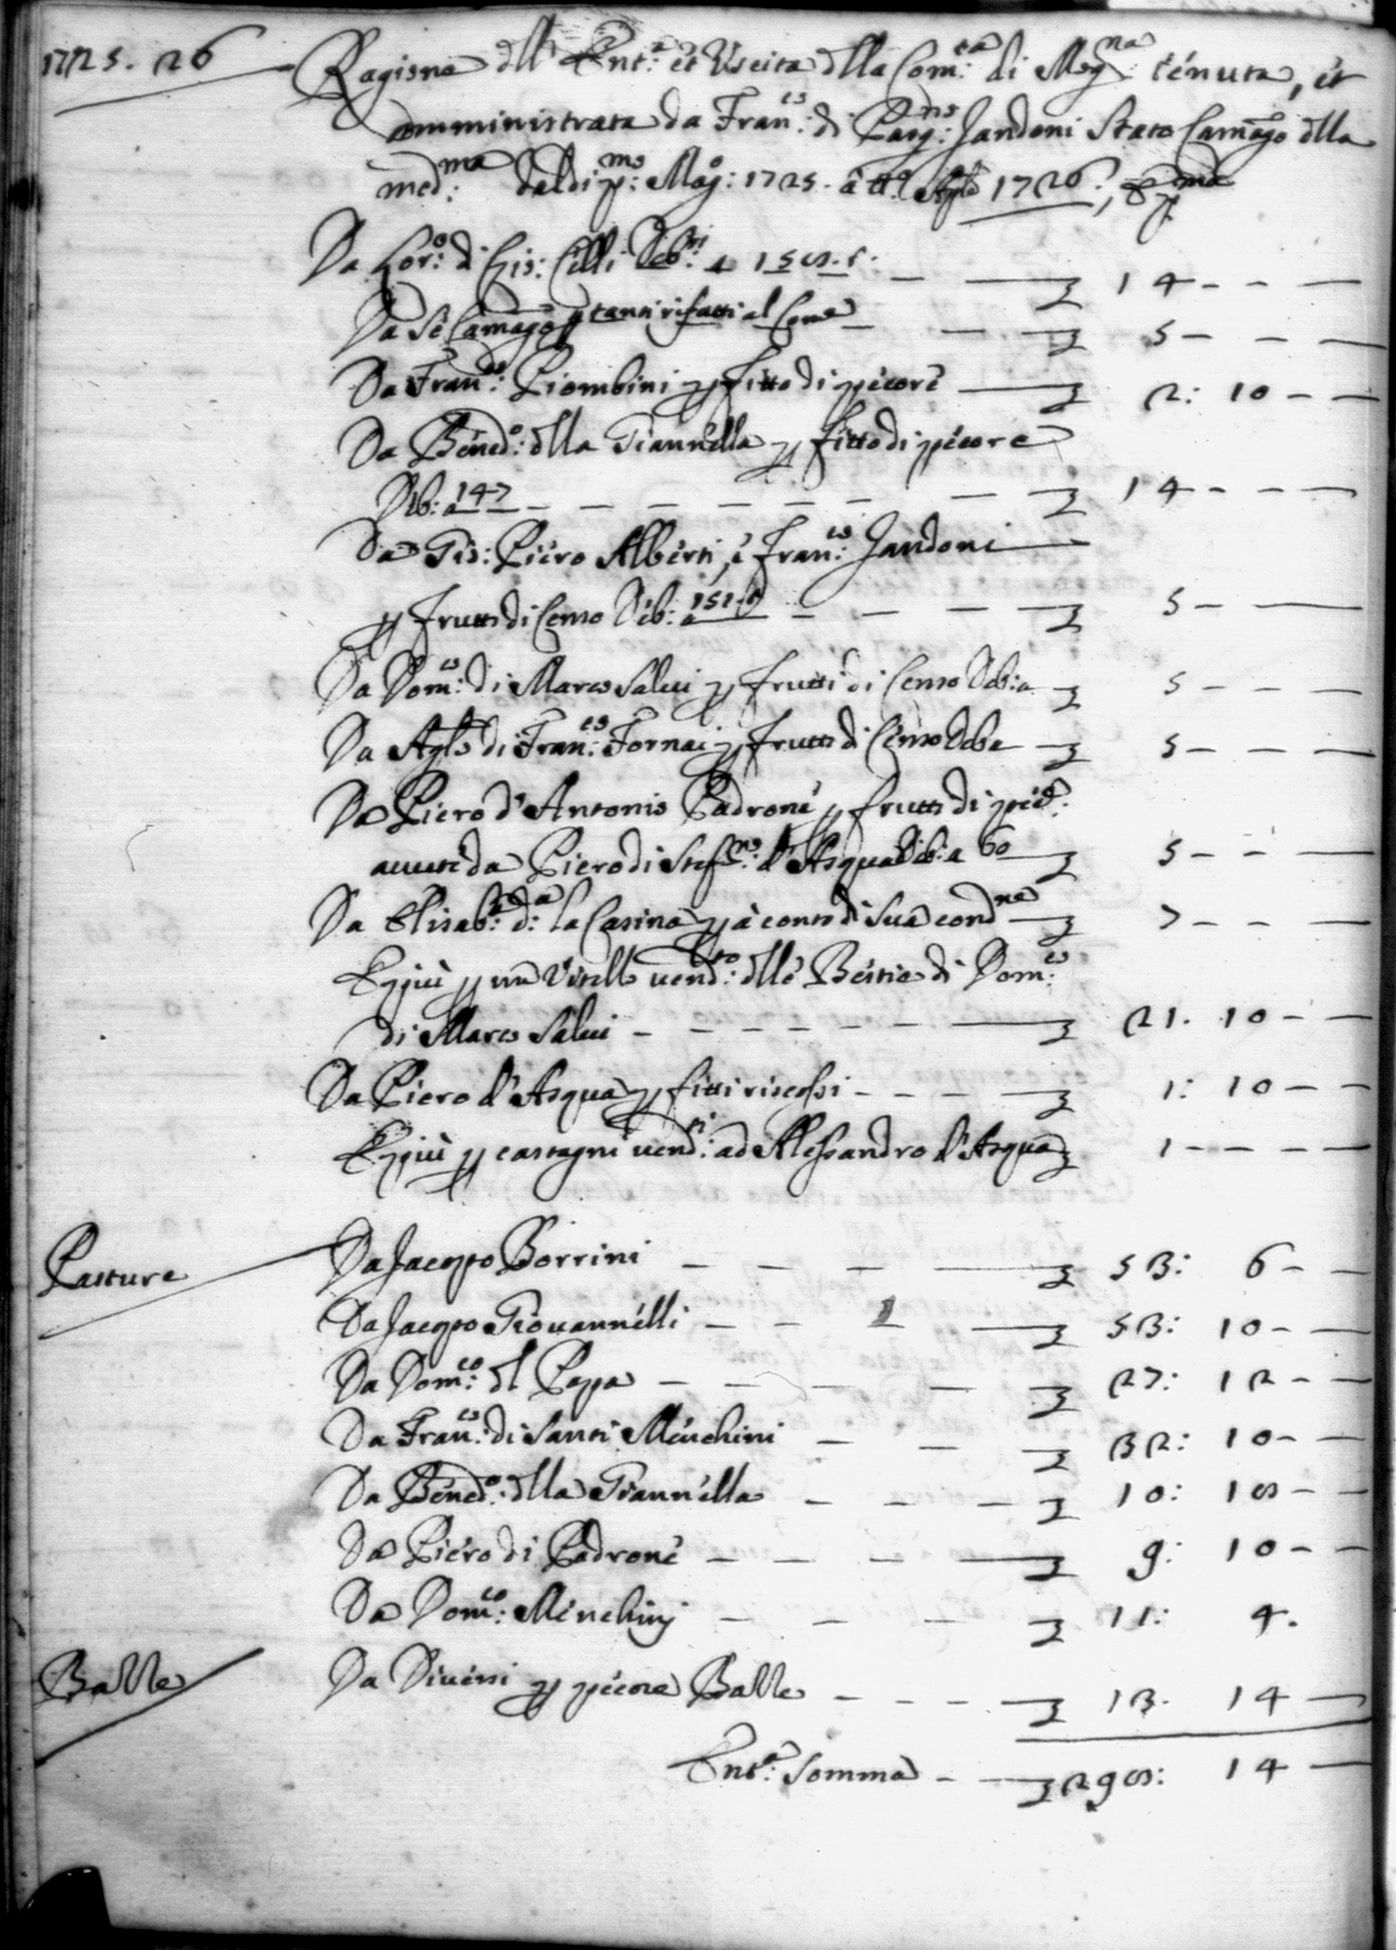 1725. 26
Ragione dll Ent:a et Uscita dlla Com:tà di Mog:na tenuta, et
amministrata da Fran:co di Pasq:no Jandoni Stato Camar:go dlla
med:ma dal di p:mo Mag:o 1725. a tt:o Aple 1726:, e p:ma
Da Lor:o di Gio: Cilli Deb:ri a 158. 5. — 14 - - -
Da Se Camar:go p tanti rifatti al Com:e — 5 - - -
Da Fran:co Piombini p fitto di pecore — 2: 10 - -
Da Bened:o dlla Giannella p fitto di pecore
Dib: a 147 — 14 - - -
Da Gio: Piero Alberti, e Fran:co Jandoni
p frutti di Censo Deb: a 151. — 5 - -
Da Dom:co di Marco Salvi p frutti di Censo Deb: a — 5 - - -
Da Agl:o di Fran:co Fornai p frutti di Censo Debe — 5 - - -
Da Piero d'Antonio Padrone p frutti di pec:e
avute da Piero di Stef:no d'Asqua Dib: a 60 — 5 - - -
Da Elisab:a d:a la Casina p à conto di sua cond:na — 7 - - -
E più p un Vitello vend:to dlle Bestie di Dom:co
di Marco Salvi — 21. 10 - -
Da Piero d'Asqua p fitti riscossi — 1: 10 - -
E più p castagni vend:ti ad Alessandro d'Asqua — 1 - - - -
Pasture
Da Jacopo Borrini — 53: 6 - -
Da Jacopo Giovannelli — 53: 10 - -
Da Dom:co dl Papa — 27: 12 - -
Da Fran:co di Santi Menchini — 32: 10 - -
Da Bened:o dlla Giannella — 10: 18 - -
Da Piero di Padrone — 9: 10 - -
Da Dom:co Menchinj — 11: 4.
Balle
Da Diversi p pecore Balle — 13. 14 —
Ent:a Somma — 298: 14 —